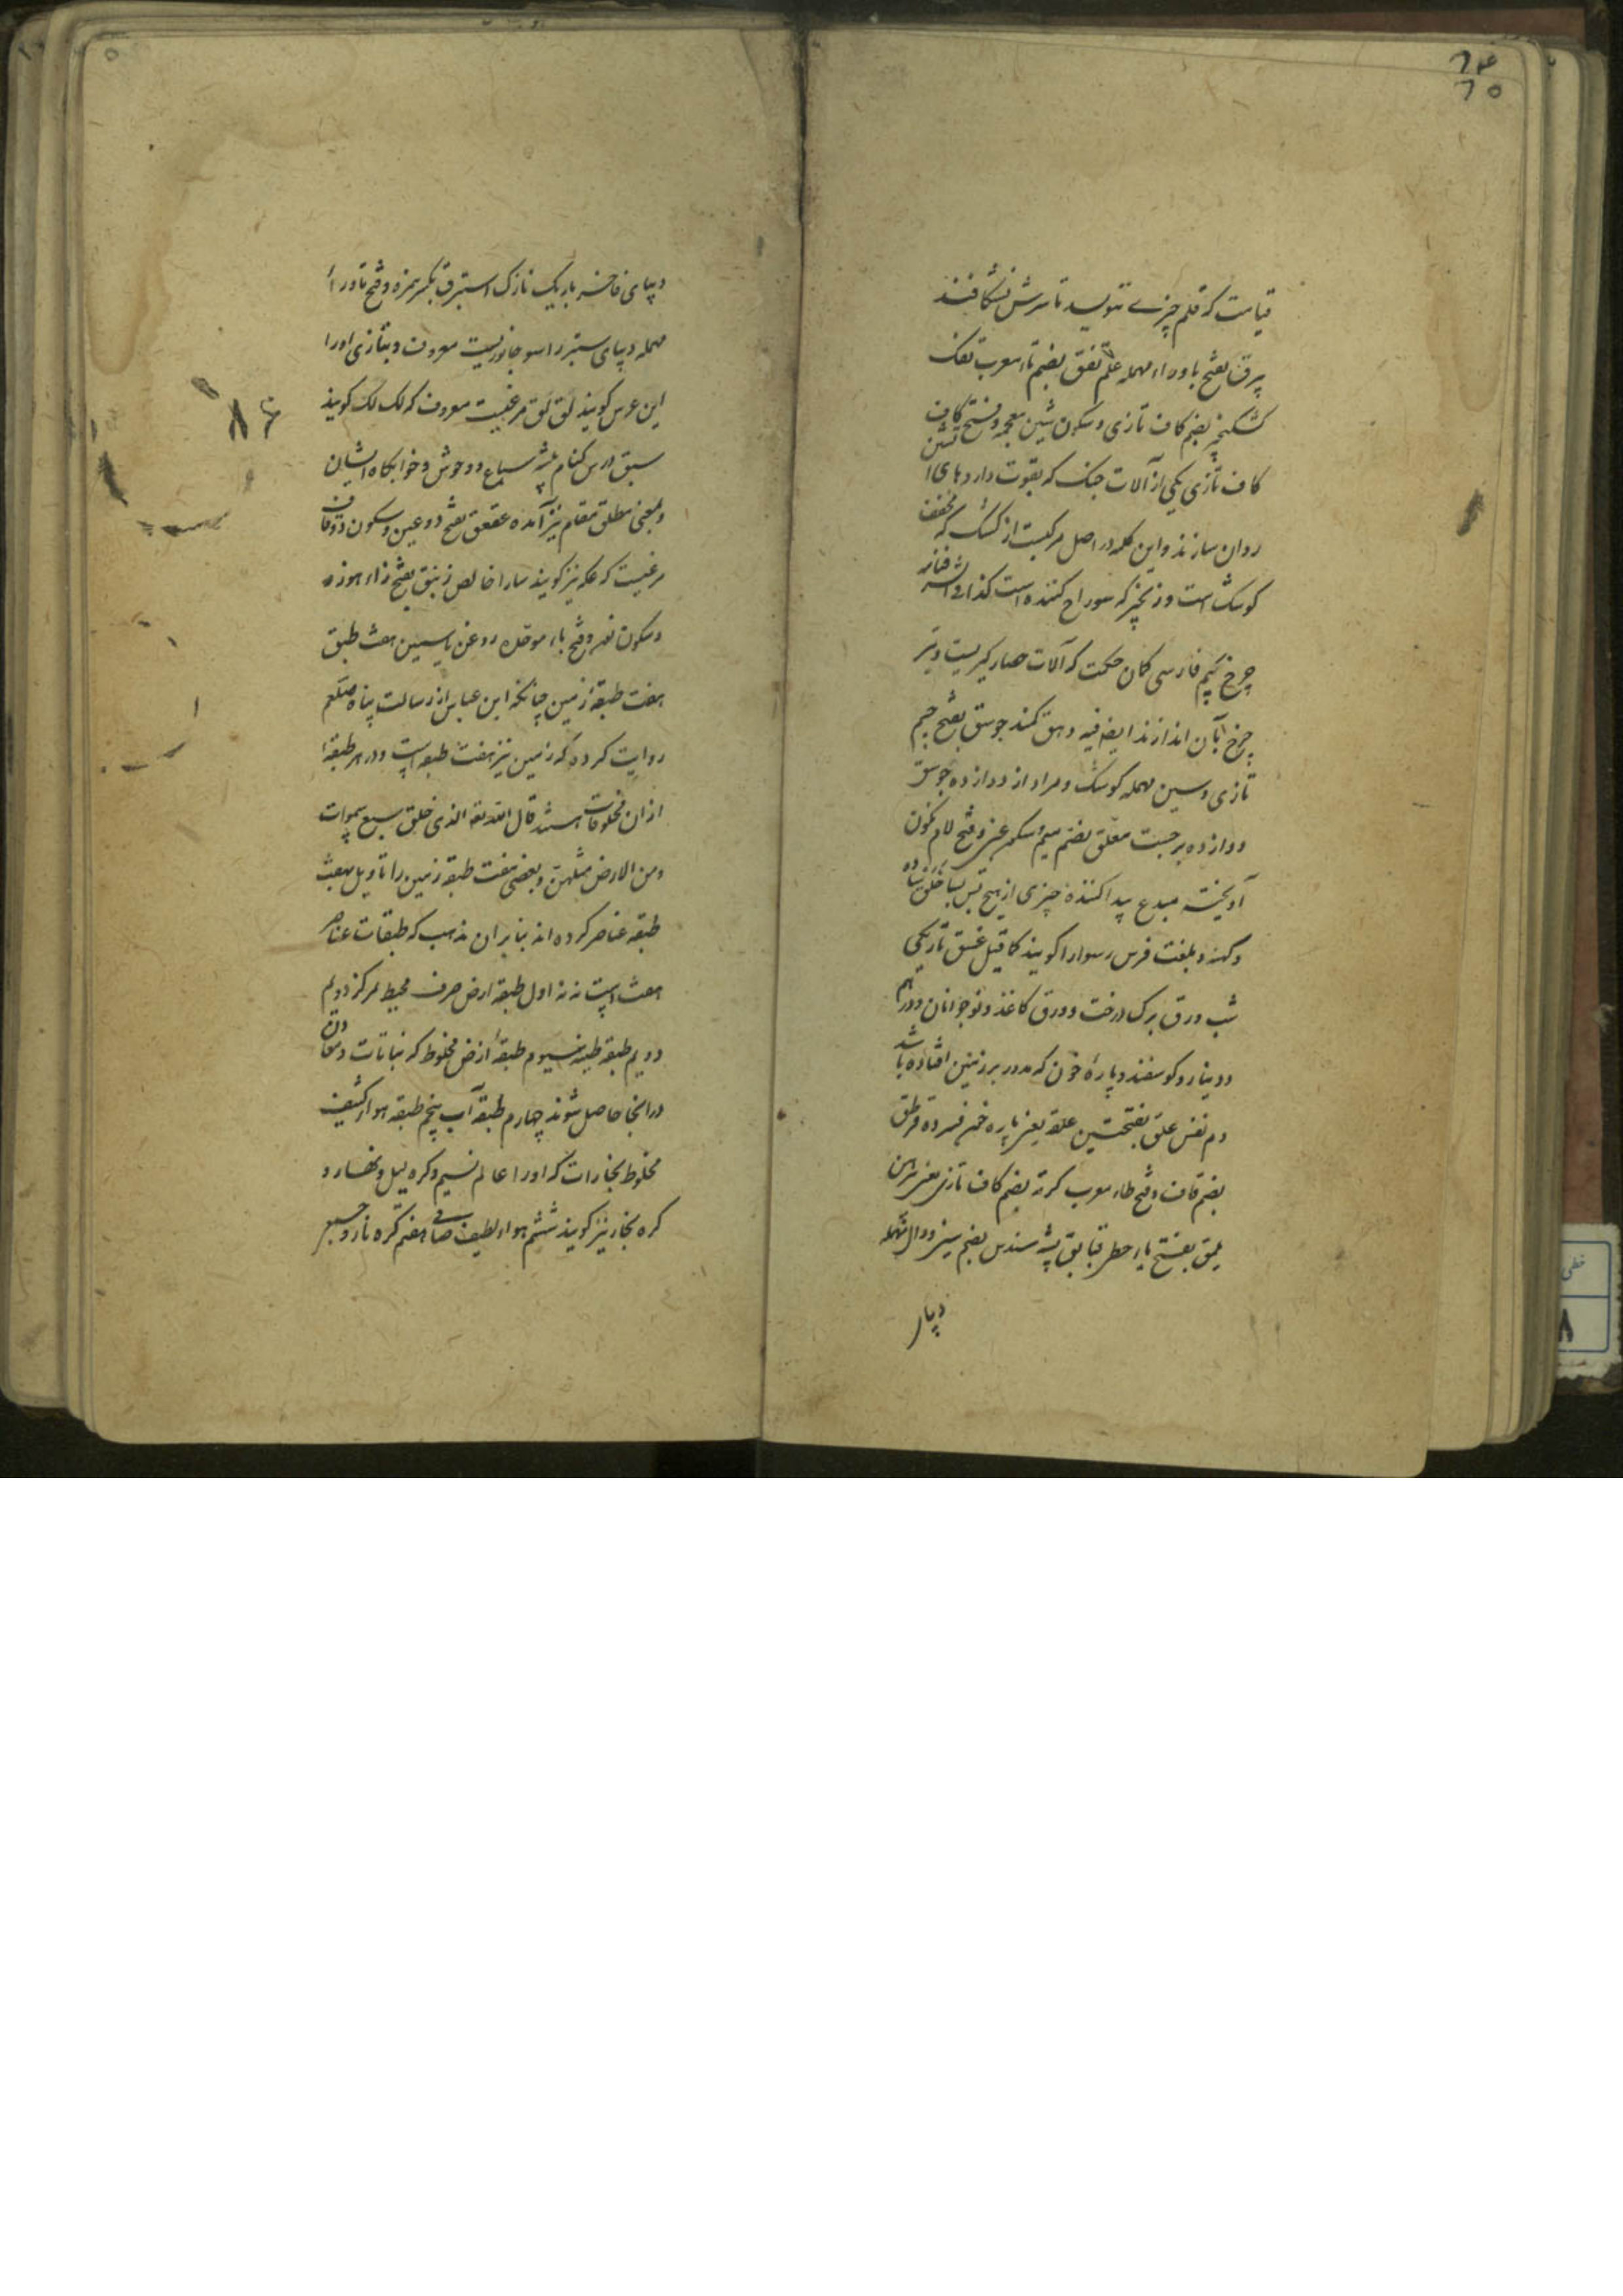 ۶۴
۶۵
قیامت که قلم چیزے ننویسد تا سرش نشکافند
بیرق بفتح با و راء مهمله علم تفق بضم تا معرب تفک
کشکنجیر بضم کاف تازی و سکون شین معجمه و فتح کاف
کاف تازی یکی از آلات جنک که بقوت دارو های
روان سازند و این کلمه در اصل مرکبست از کشک که مخفف
کوشک است و زنجیر که سوراخ کننده است کذا فی
چرخ بجیم فارسی کمان حکمت که آلات حصار کیریست و تیر
چرخ بآن اندازند ایضا فیه وهق کمند جوسق بفتح جیم
تازی و سین مهمله کوشک و مراد از دوازده جوسق
دوازده برجست معلق بضم میم و سکون عین و فتح لام نکون
آویخته مبدع پیدا کننده چیزی از هیچ خلق
و کهنه و بلغت فرس رسوا را کویند کما قیل غسق تاریکی
شب ورق برک درخت و ورق کاغذ و نوجوانان و دراهم
و دینار و کوسفند و پارهٔ خون که مدور بر زمین افتاده باشد
دم نفس علق بفتحتین علقه یعنی پاره خون فسرده قرطق
بضم قاف و فتح طاء معرب کرته بضم کاف تازی یعنی پیراهن
یلمق بفتح یاء حطی قبا بق پشه سندس بضم سین و دال مهمله
دیبای
دیبای فاخر باریک نازک استبرق بکسر همزه و فتح تا و راء
مهمله دیبای ستبر راسو جانوریست معروف و بتازی او را
ابن عرس کویند لق لق مرغیست معروف که لک لک کویند
سبق درس کنام بیشه سباع و وحوش و خوابکاه ایشان
و بمعنی مطلق مقام نیز آمده عقعق بفتح دو عین و سکون دو قاف
مرغیست که عکه نیز کویند سارا خالص زنبق بفتح زاء هوزه
و سکون نون و فتح باء موحده روغن یاسمین هفت طبق
هفت طبقهٔ زمین چنانکه ابن عباس از رسالت پناه صلعم
روایت کرده که زمین نیز هفت طبقه است و در هر طبقهٔ
ازان مخلوقات هستند قال الله تعه الذی خلق سبع سموات
ومن الارض مثلهن و بعضی هفت طبقه زمین را تاویل بهفت
طبقه عناصر کرده اند بنا بران مذهب که طبقات عناصر
هفت است نه نه اول طبقه ارض صرف محیط مرکز دویم
دویم طبقه طینه سیوم طبقهٔ ارض مخلوط که نباتات و معادن
درانجا حاصل شوند چهارم طبقه آب پنجم طبقه هواء کثیف
مخلوط بخارات که او را عالم نسیم و کره لیل و نهار و
کره بخار نیز کویند ششم هواء لطیف صافی هفتم کره نار و جمیع